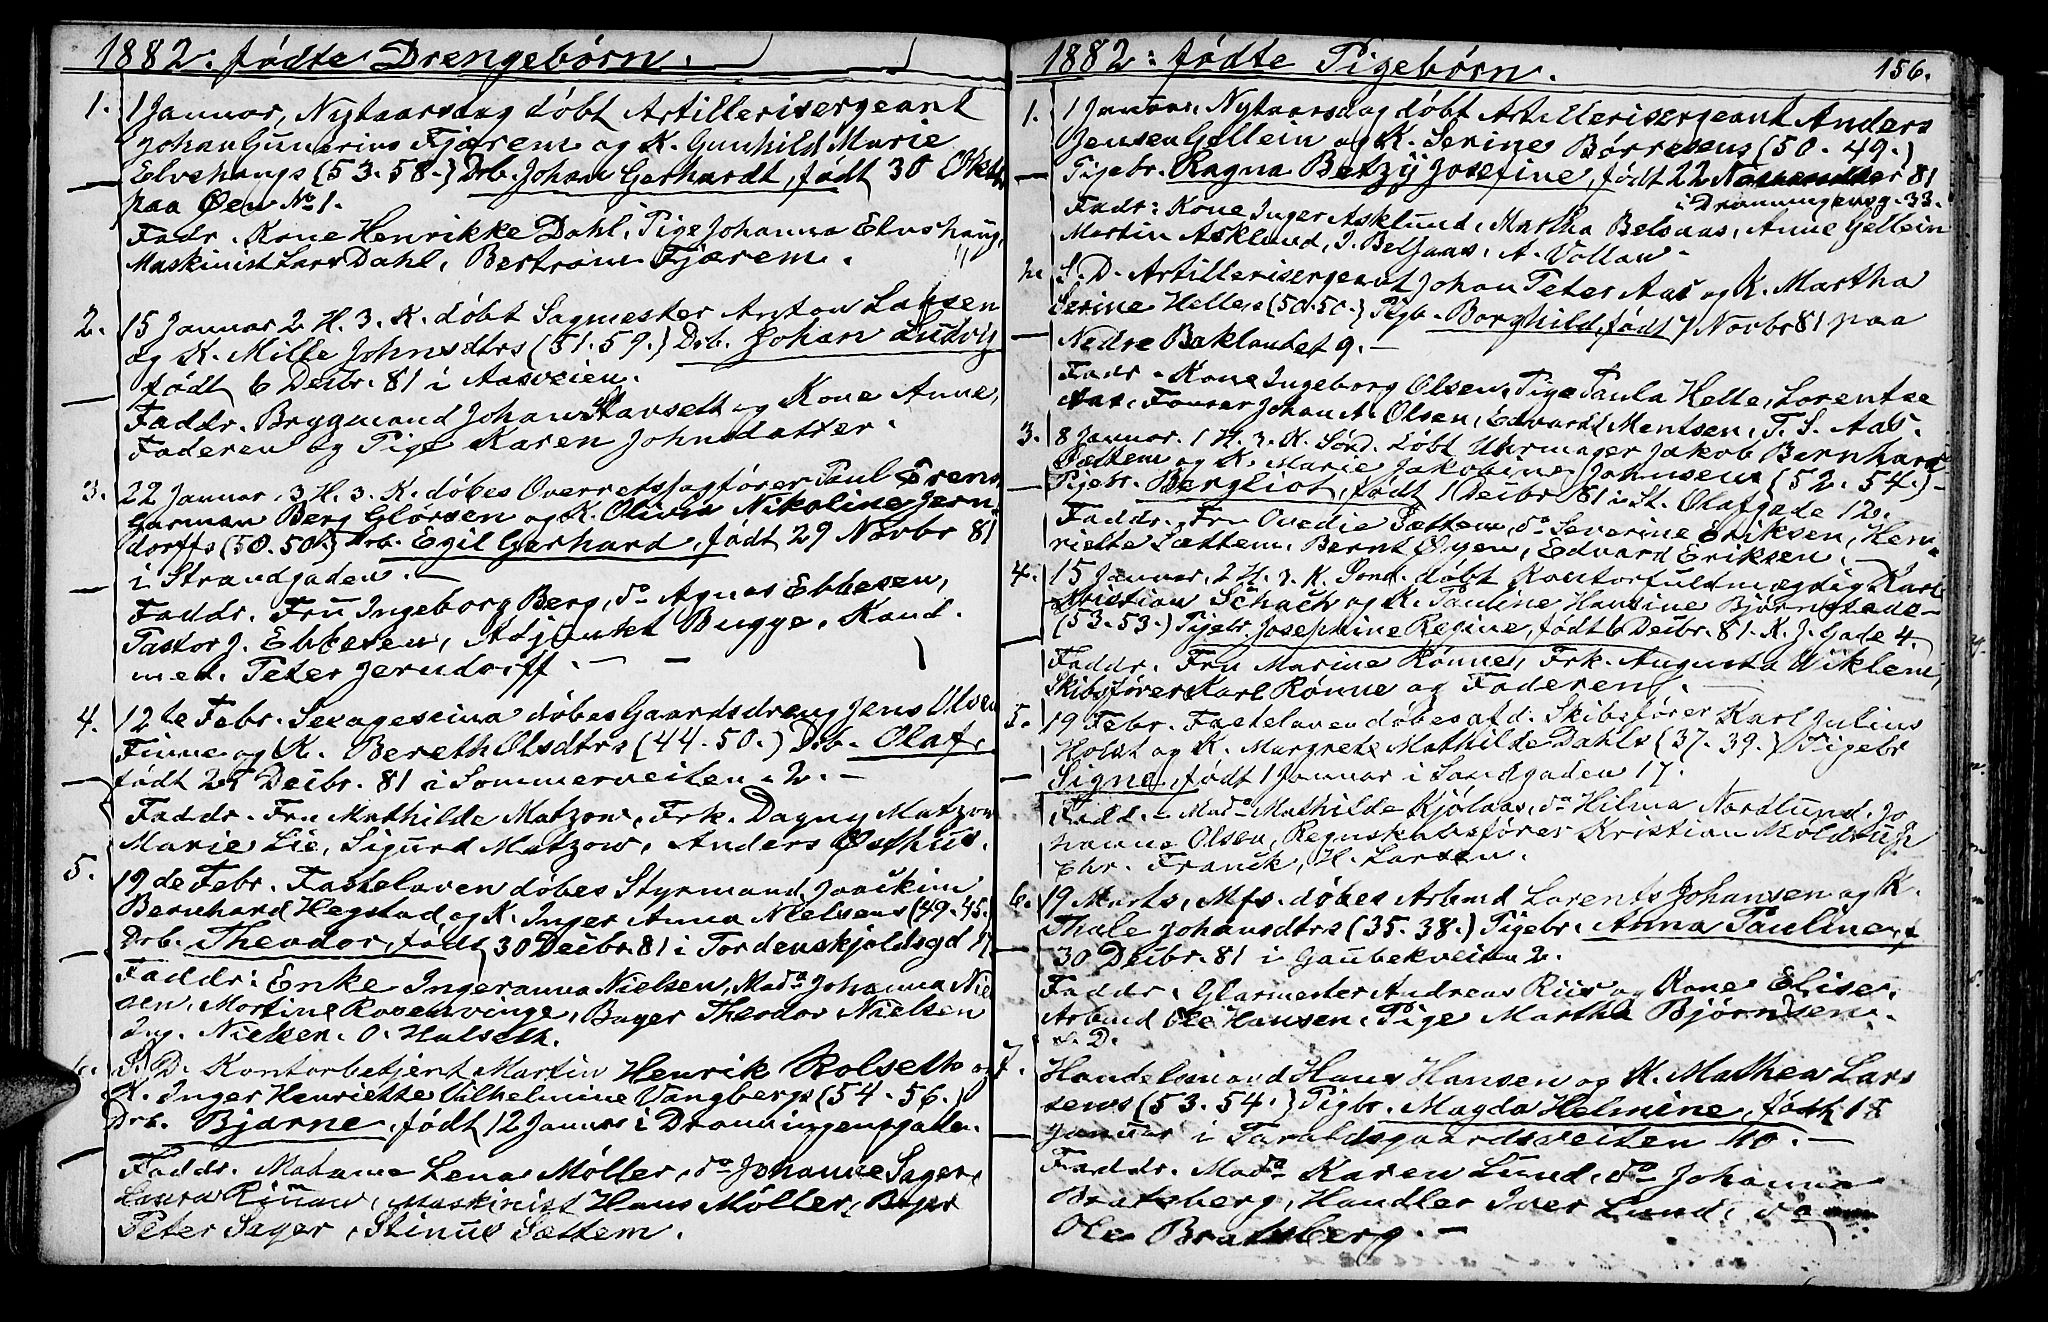 1882. fødte Drengebørn.
1. 1 Januar, Nytaarsdag døbt Artillerisergeant
Johan Gunerius Fjærem og K. Gunhild Marie
Elvehaugs (53.58.) Drb. Johan Gerhardt, født 30 Oktbr
paa Øen No 1.
Fadr. Kone Henrikke Dahl, Pige Johanna Elvehaug,
Maskinist Lars Dahl, Bertram Fjærem.
2. 15 Januar 2 H. 3. K. døbt Sagmester Anton Larsen
og K. Mille Johnsdtrs (51.59.) Drb. Johan Ludvig
født 6 Decbr. 81 i Aasveien.
Faddr. Brygmand Johan Stavseth og Kone Anne,
Faderen og Pige Karen Johnsdatter.
3. 22 Januar, 3 H. 3. K. døbes Overretssagfører Paul Frens
Garman Berg Glørsen og K. Olivia Nikoline Jern
dorffs (50.50.) Drb. Egil Gerhard, født 29 Novbr 81
i Strandgaden.
Faddr. Fru Ingeborg Berg, do Agnes Ebbesen,
Pastor J. Ebbesen, Adjunkt Bugge, Kand.
med. Peter Jerndorff.
4. 12te Febr. Sexagesima døbes Gaardsdreng Jens Olsen
Finne og K. Bereth Olsdtrs (44.50.) Drb. Olaf,
født 25 Decbr. 81 i Sommerveiten 2.
Faddr. Fru Mathilde Matzow, Frk. Dagny Matzow
Marie Lie, Sigurd Matzow, Anders Østhus.
5. 19de Febr. Fastelaven døbes Styrmand Joackim
Bernhard Hegstad og K. Inger Anna Nielsens (49.45.)
Drb. Theodor, født 30 Decbr. 81 i Tordenskjoldsgd 17
Faddr: Enke Ingeranna Nielsen, Mada Johanna Niel
sen, Mortine Rosenvinge, Bager Theodor Nielsen
Ing. Nielsen. O. Halseth.
6. S. D. Kontorbetjent Martin Henrik Rolseth og
K. Inger Henriette Vilhelmine Vangbergs (54.56.)
Drb. Bjarne, født 12 Januar i Dronningensgaden.
Faddr. Madame Lena Møller, do Johanne Sager,
Laura Rinnan, Maskinist Hans Møller, Bager
Peter Sager, Stinus Sættem.
1882. fødte Pigebørn. 156.
1. 1 Januar, Nytaarsdag døbt Artillerisergeant Anders
Jensen Gellein og K. Serine Børresens (50.49.)
Pigebr. Ragna Betzy Josefine, født 22 November 81
i Dronningensg. 33.
Fadr: Kone Inger Asklund, Martha Belsaas, Anne Gellein
Martin Asklund, J. Belsaas, A. Vollan.
2. S. D. Artillerisergeant Johan Peter Aas og K. Martha
Serine Helles (50.50.) Pigb. Borghild, født 7 Novbr 81 paa
Nedre Baklandet 9.
Fadr. Kone Ingeborg Olsen, Pige Paula Helle, Lorentse
Aas, Fourer Johan A. Olsen, Edvard Mentsen, T. S. Aas.
3. 8 Januar. 1 H. 3. K. Sønd. døbt Uhrmager Jakob Bernhard
Sættem og K. Marie Jakobine Johnsens (52.54.)
Pigebr. Bergliot, født 1 Decbr 81 i St. Olafgade 12.
Faddr. Fru Ovedie Sættem, do Severine Eriksen, Hen
riette Sættem, Bernt Øyen, Edvard Eriksen.
4. 15 Januar, 2 H. 3. K. Sønd. døbt Kontorfuldmægtig Karl
Kristian Schach og K. Pauline Hansine Bjørnstads
(53.53.) Pigebr. Josephine Regine, født 6 Decbr. 81. K. J. Gade 4.
Faddr. Fru Marine Rønne, Frk. Augusta Wiklem,
Skibsfører Karl Rønne og Faderen.
5. 19 Febr. Fastelaven døbes afd. Skibsfører Karl Julius
Holst og K. Margrete Mathilde Dahls (37.39.) Pigebr
Signe, født 1 Januar i Sandgaden 17.
Fadd. Mada Mathilde Kjølaas, do Hilma Nordlund, Jo
hanna Olsen, Regnskabsfører Kristian Moldrup
Chr. Franck, H. Larsen.
6. 19 Marts, Mfs. døbes Arbmd Lorents Johansen og K.
Thale Johansdtrs (35.38.) Pigebr. Anna Pauline, f
30 Decbr. 81 i Gaubekveiten 2.
Faddr. Glarmester Andreas Riis og Kone Elise.
Arbmd Ole Hansen, Pige Martha Bjørnsen.
7. S. D.
Handelsmand Hans Hansen og K. Mathea Lar
sens (53.54.) Pigbr. Magda Helmine, født 18
Januar i Taraldsgaardsveiten 10.
Faddr. Mada Karen Lund, do Johanna
Bratsberg, Handler Iver Lund, do
Ole Bratsberg.